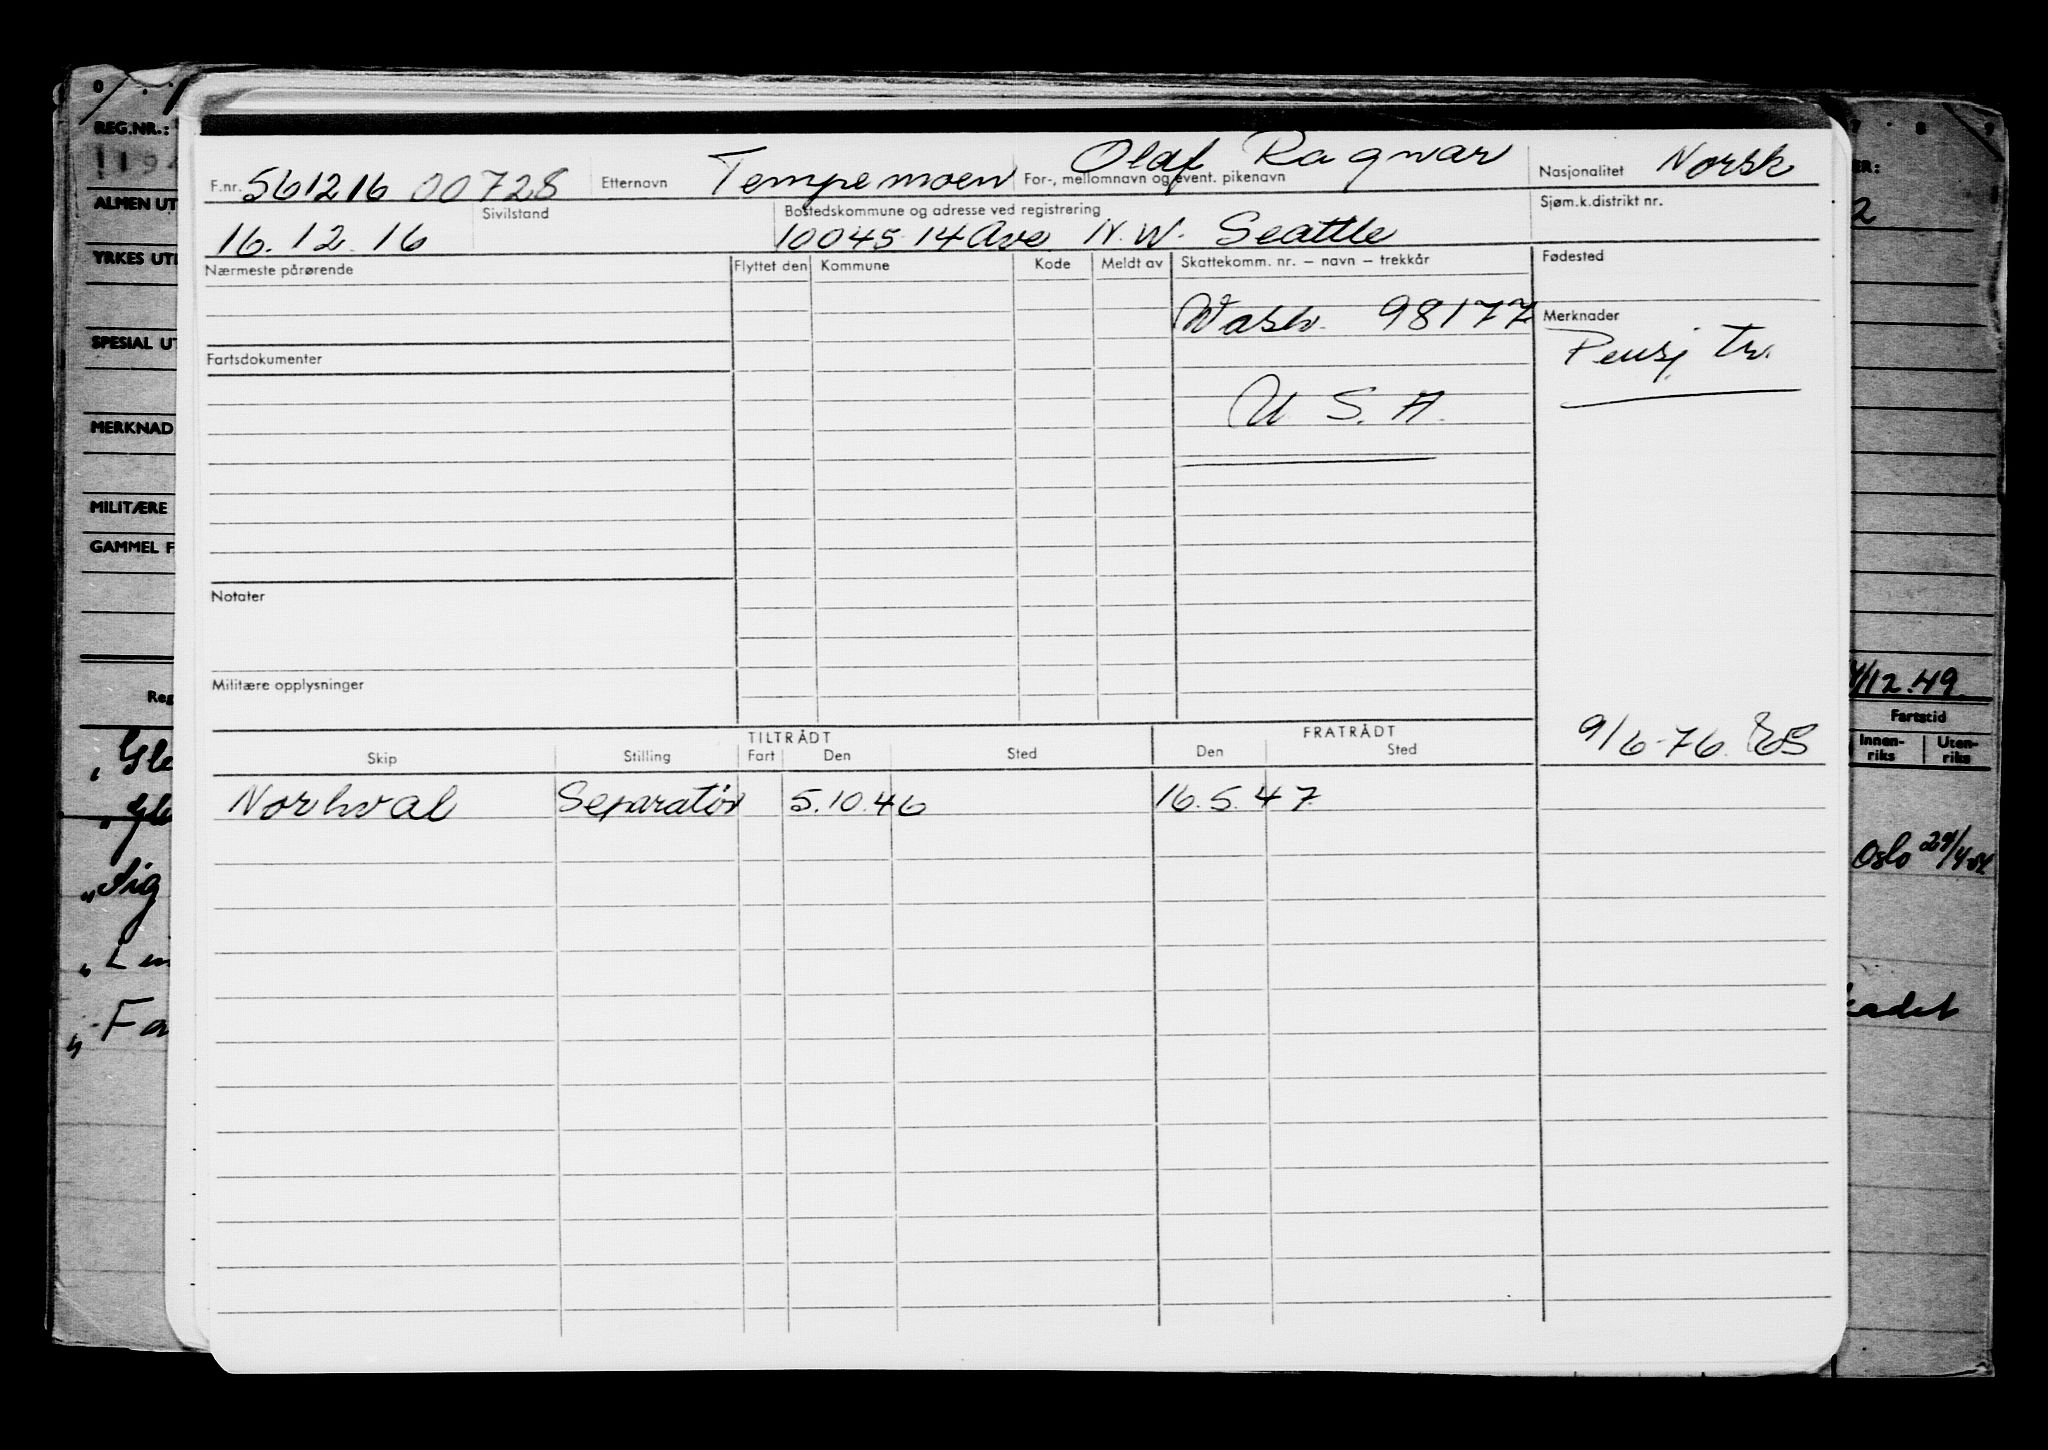 F.nr. 561216 00728 Etternavn Tempemoen For-, mellomnavn og event. pikenavn Olaf Ragnar Nasjonalitet Norsk
16.12.16 Sivilstand Bostedskommune og adresse ved registrering 10045 14 Ave N.W. Seattle Sjøm.k.distrikt nr.
Nærmeste pårørende Flyttet den Kommune Kode Meldt av Skattekomm. nr. – navn – trekkår Fødested
Wash. 98177 Merknader
Fartsdokumenter Pensj tr.
U. S. A.
Notater
Militære opplysninger
TILTRÅDT FRATRÅDT 9/6-76.
Skip Stilling Fart Den Sted Den Sted
Norhval Separatør 5.10.46 16.5.47
REG.NR.:
ALMEN UT
YRKES UT
SPESIAL UT
MERKNAD
MILITÆRE
GAMMEL F
Reg
„Sig
„Fa
ER:
2
/12.49.
Fartstid
Innen-riks Uten-riks
Oslo